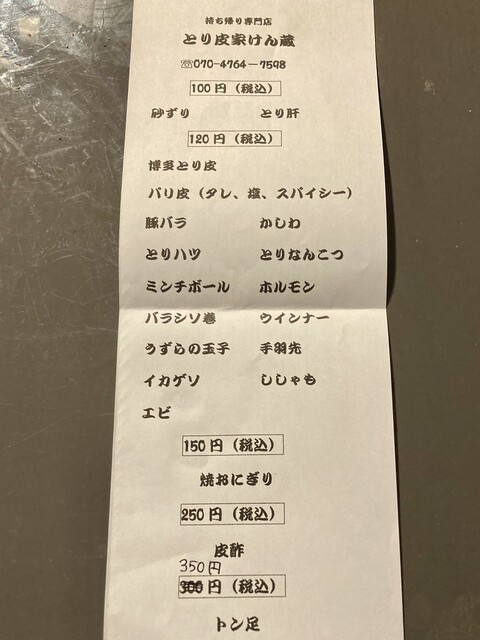 持ち帰り専門店
とり皮家けん蔵
☏070-4764-7598
100円（税込）
砂ずり　とり肝
120円（税込）
博多とり皮
バリ皮（タレ、塩、スパイシー）
豚バラ　かしわ
とりハツ　とりなんこつ
ミンチボール　ホルモン
バラシソ巻　ウインナー
うずらの玉子　手羽先
イカゲソ　ししゃも
エビ
150円（税込）
焼おにぎり
250円（税込）
皮酢
350円
300円（税込）
トン足